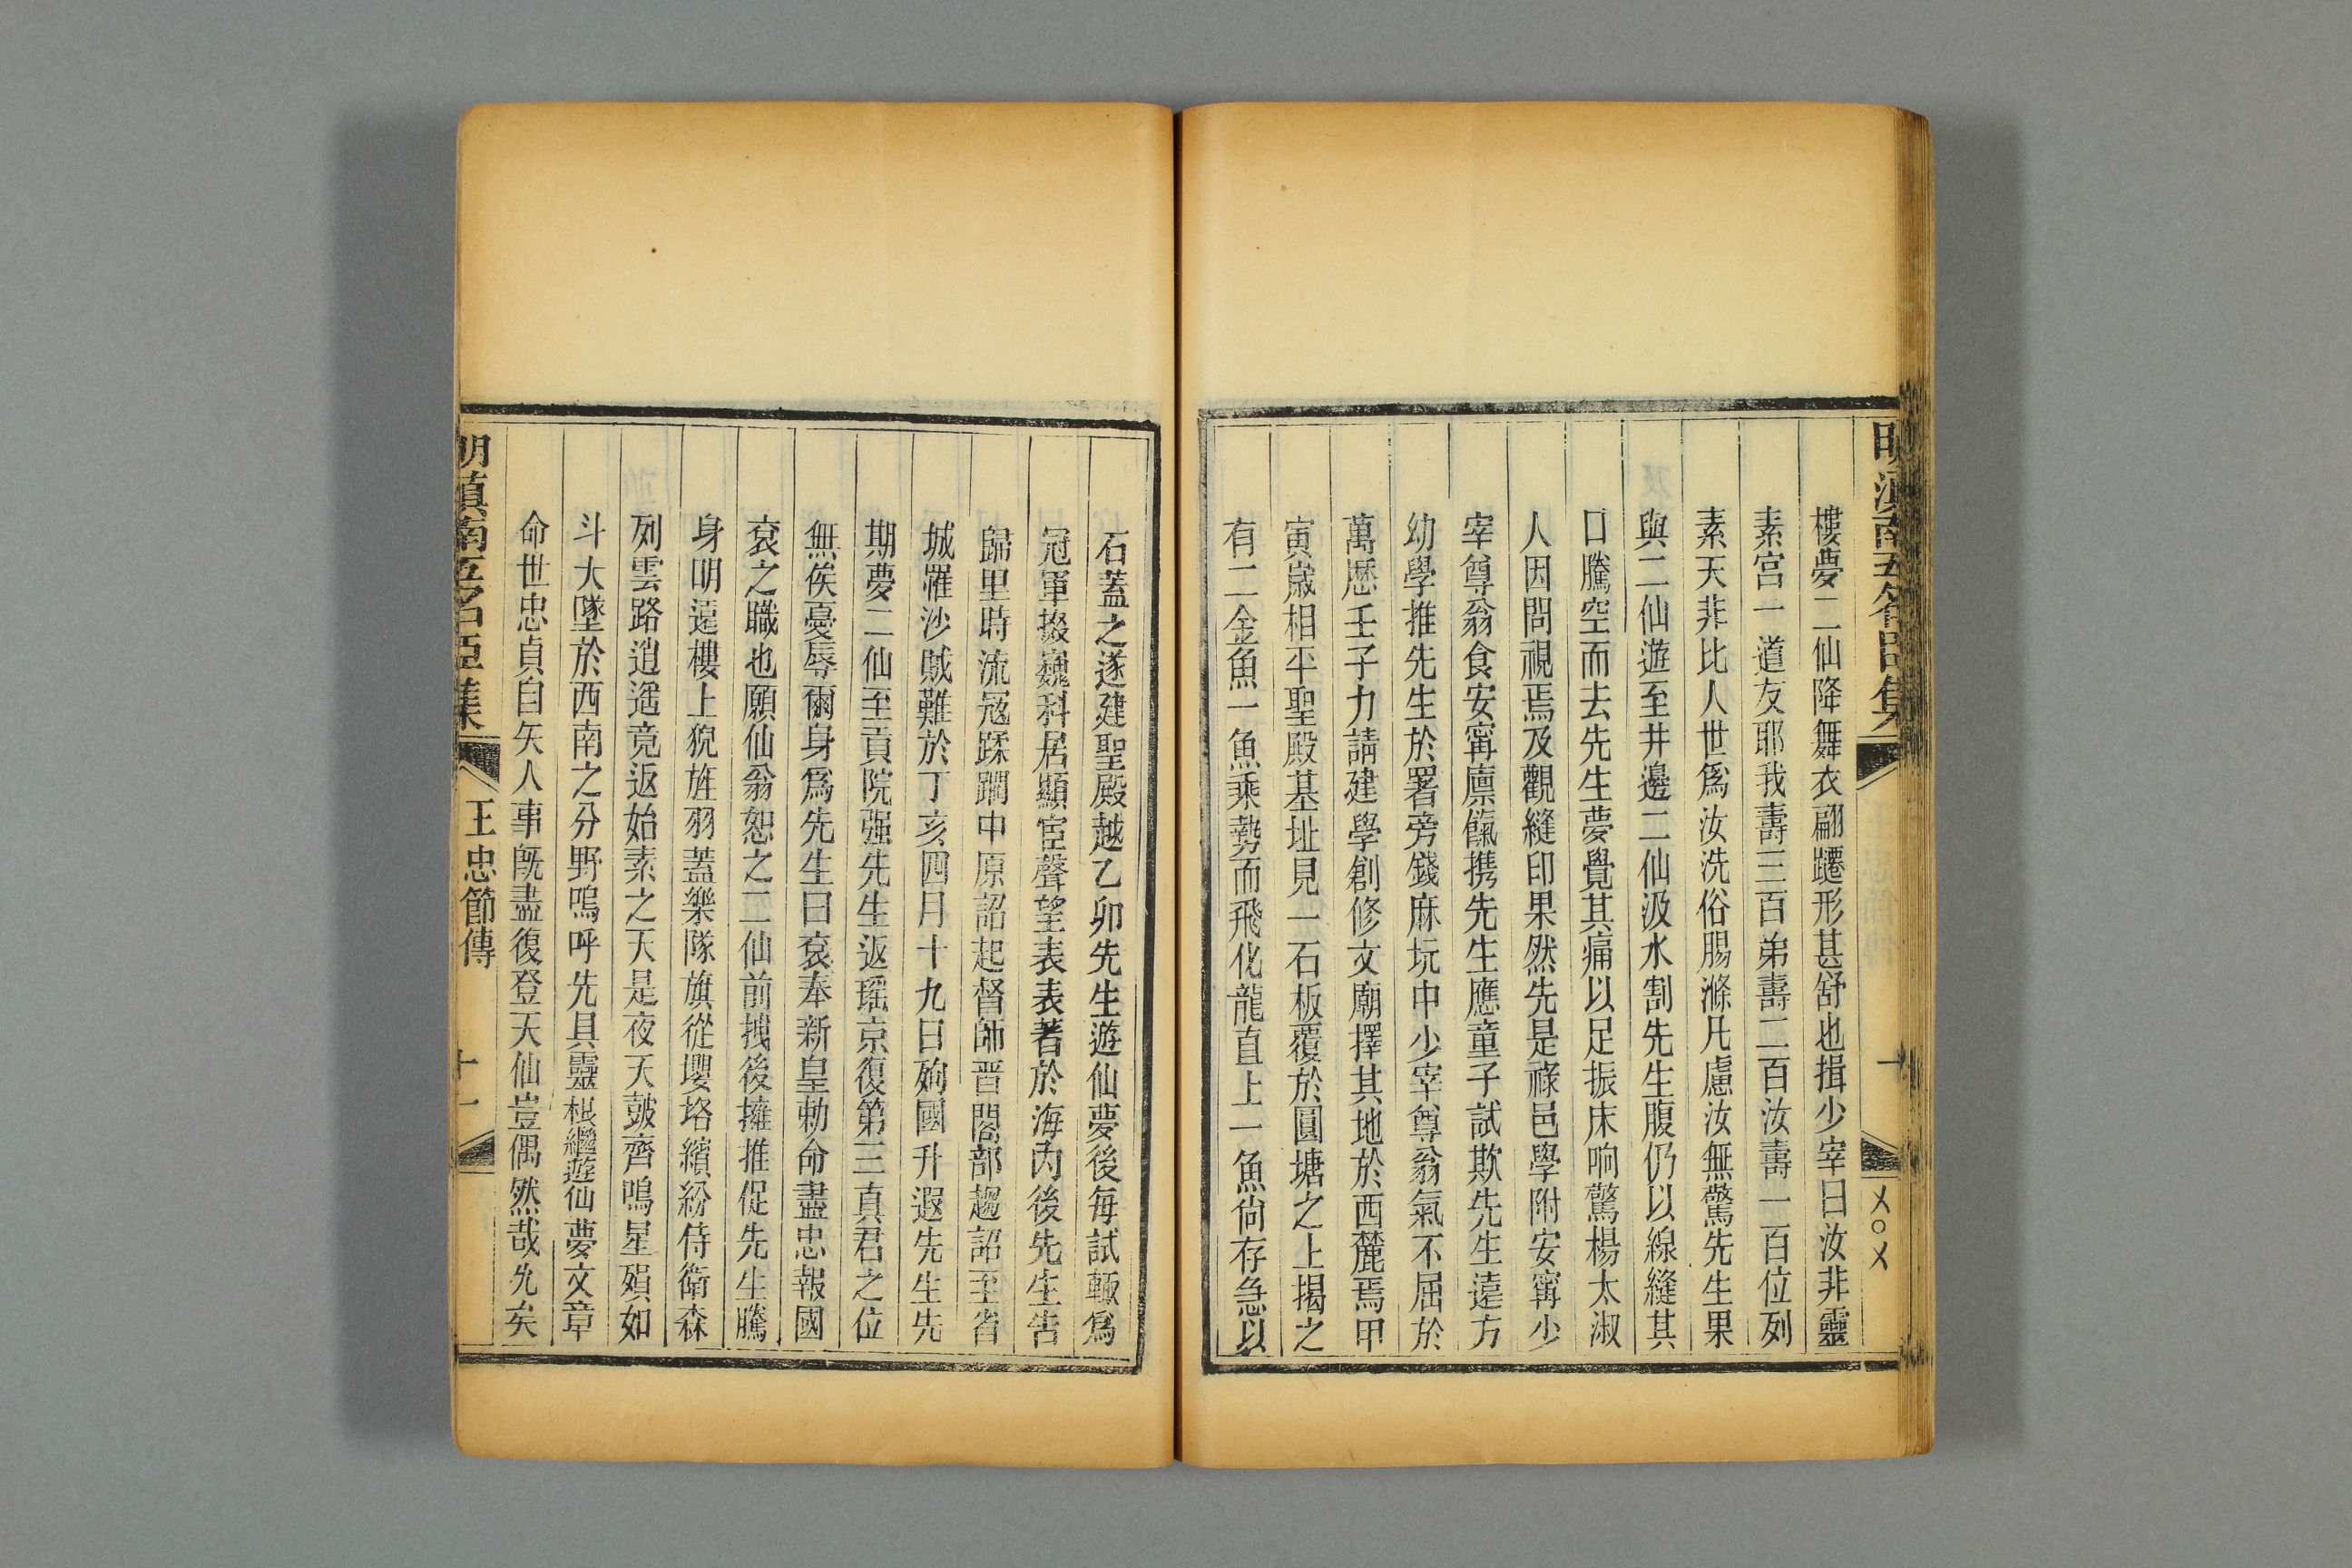 明滇南五名臣集
樓夢二仙降舞衣翩躚形甚舒也揖少宰曰汝非靈
素宮一道友耶我壽三百弟壽二百汝壽一百位列
素天非比人世爲汝洗俗腸滌凡慮汝無驚先生果
與二仙遊至井邊二仙汲水割先生腹仍以線縫其
口騰空而去先生夢覺其痛以足振床响驚楊太淑
人因問視焉及觀縫印果然先是祿邑學附安寗少
宰尊翁食安寗廩餼携先生應童子試欺先生遠方
幼學推先生於署旁錢麻坑中少宰尊翁氣不屈於
萬歷壬子力請建學創修文廟擇其地於西麓焉甲
寅歲相平聖殿基址見一石板覆於圓塘之上揭之
有二金魚一魚乘勢而飛化龍直上一魚尙存急以
石蓋之遂建聖殿越乙卯先生遊仙夢後每試輒爲
冠軍掇巍科居顯宦聲望表表著於海內後先生告
歸里時流冦蹂躙中原詔起督師晋閣部趨詔至省
城罹沙賊難於丁亥四月十九日殉國升遐先生先
期夢二仙至貢院强先生返瑶京復第三真君之位
無俟憂辱爾身爲先生曰衮奉新皇勅命盡忠報國
衮之職也願仙翁恕之二仙前拽後擁推促先生騰
身明遠樓上猊旌羽蓋樂隊旗從瓔珞繽紛侍衛森
列雲路逍遙竟返始素之天是夜天皷齊鳴星殞如
斗大墜於西南之分野嗚呼先具靈根繼遊仙夢文章
命世忠貞自矢人事旣盡復登天仙豈偶然哉允矣
明滇南五名臣集
王忠節傳
十一